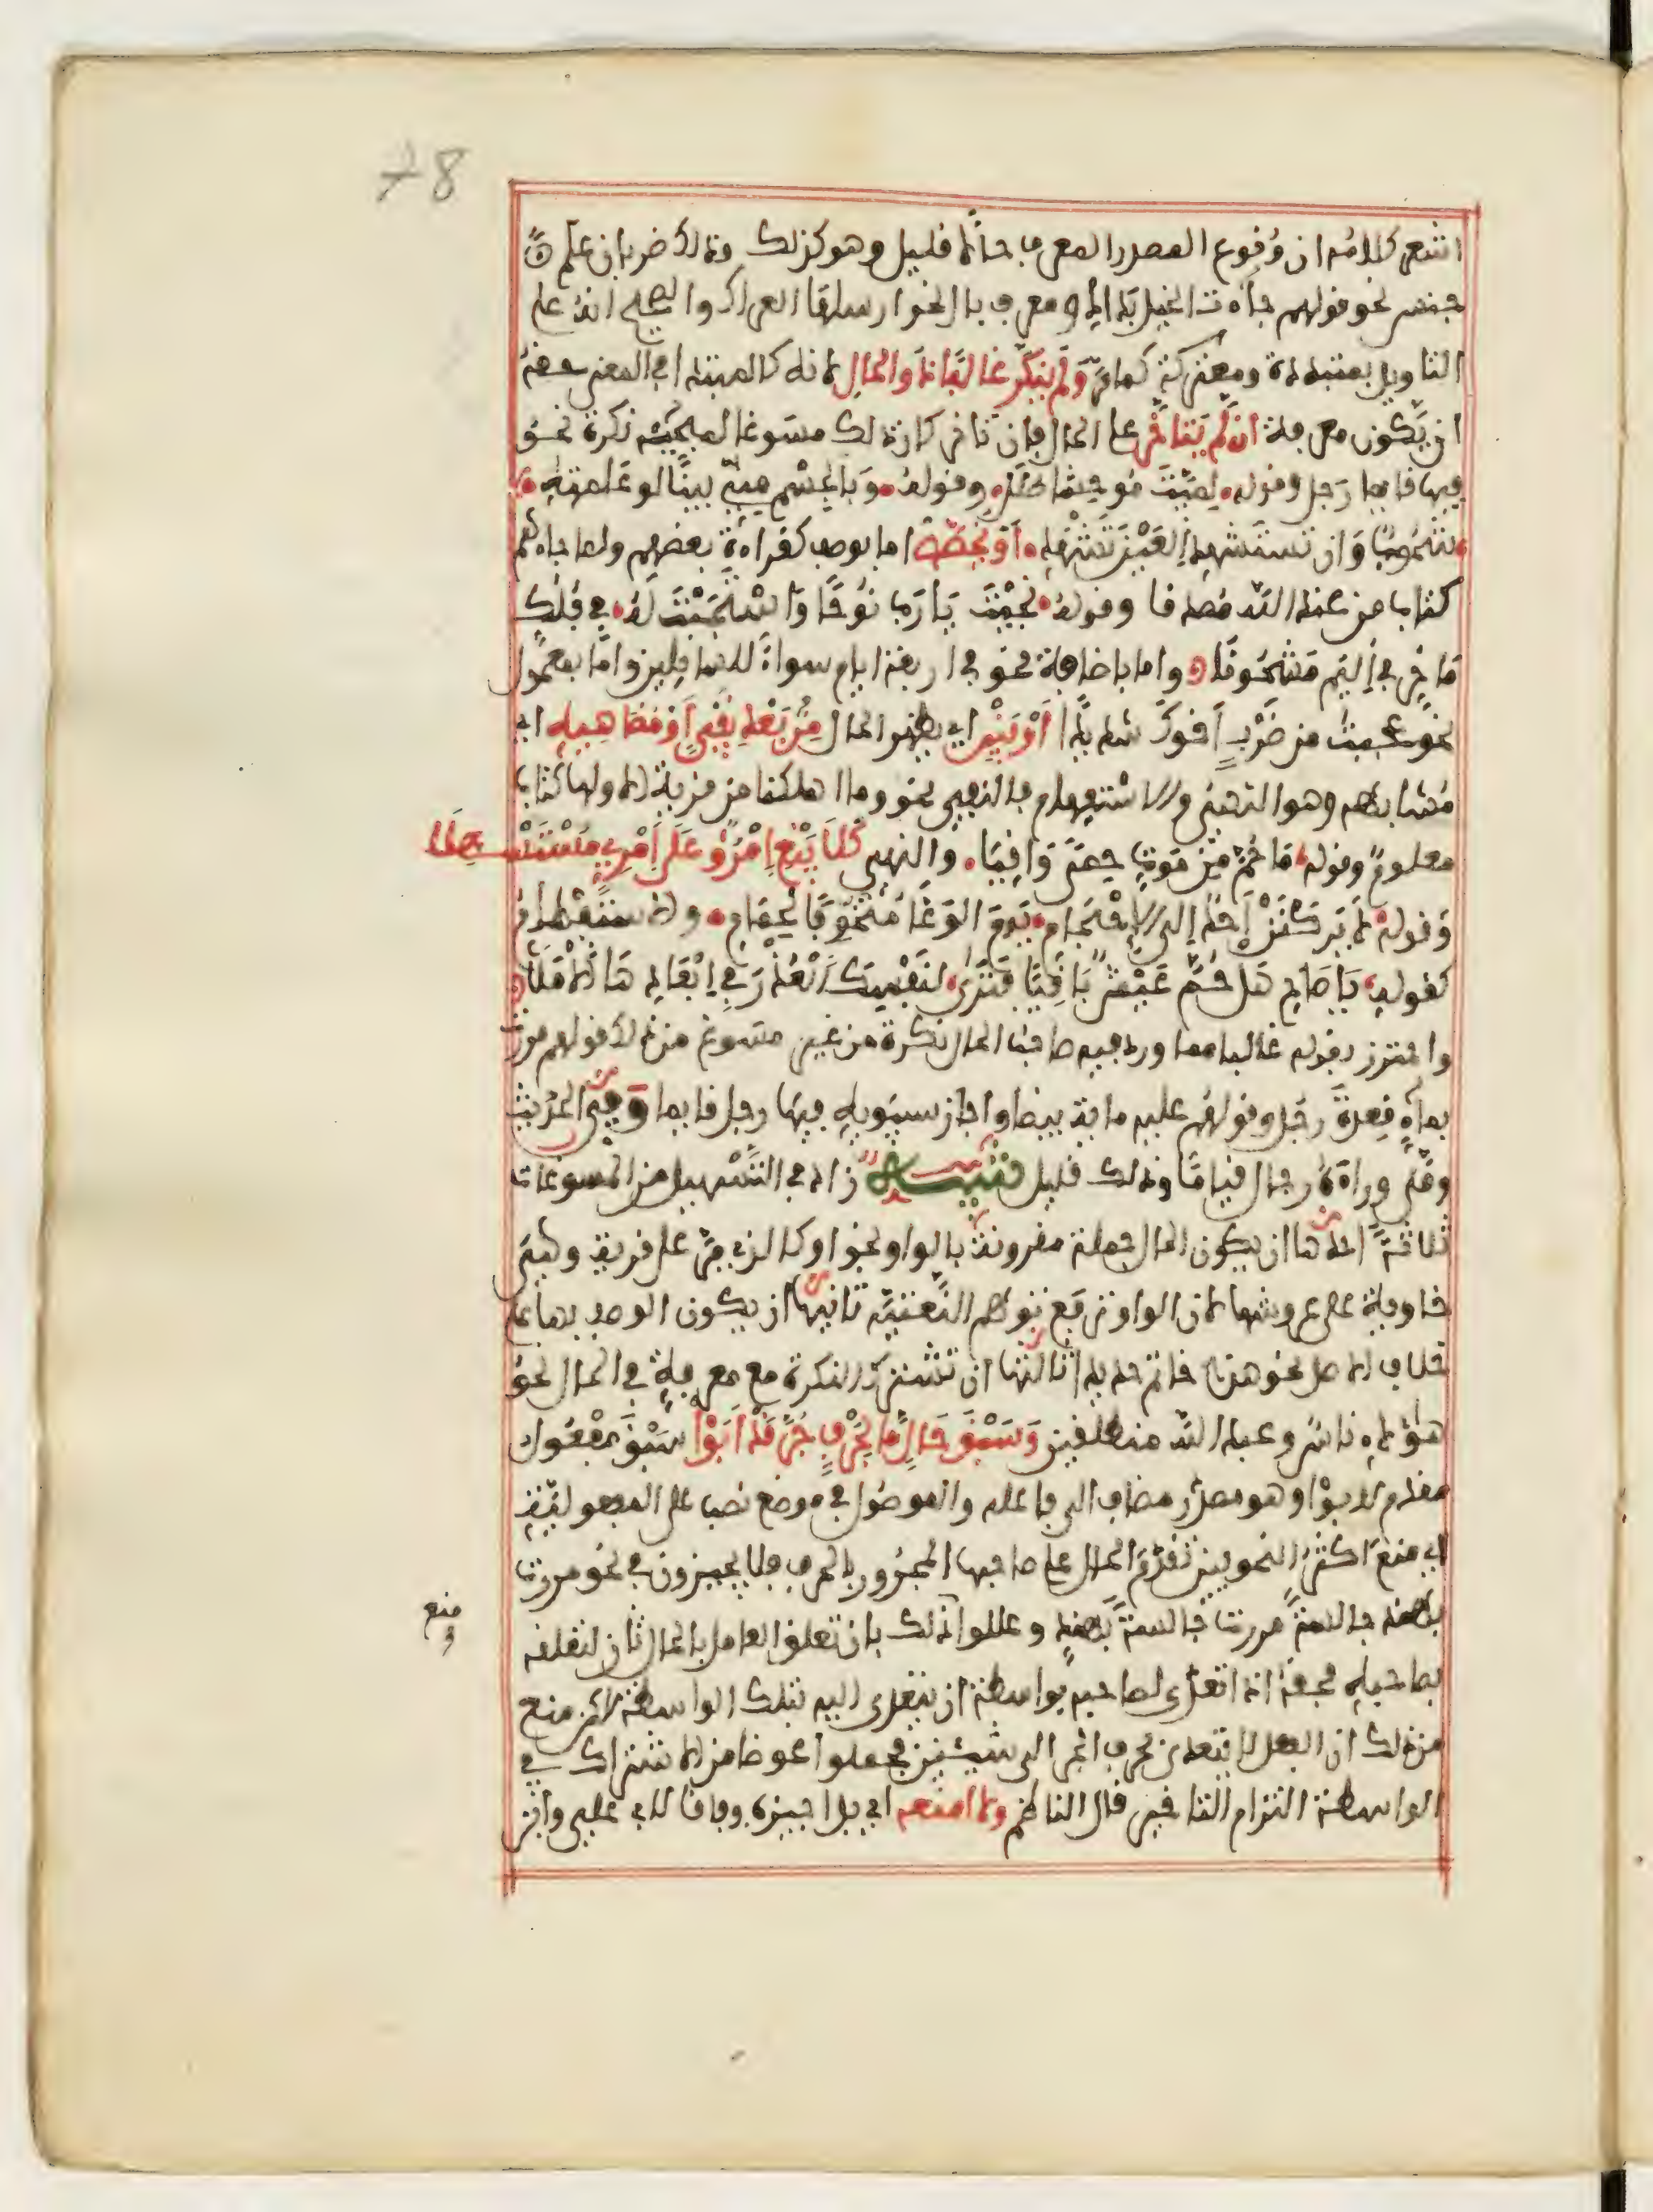 78
اشعر كلامه ان وقوع المصدر المعرف حالا قليل وهو كذلك وذلك ضربان علم
جنس نحو قولهم جاءت الخيل بداد ومعرف بال نحو ارسلها العراك والصحيح انه على
التاويل بمتبددة ومعتركة كما مر ولم ينكر غالبا ذو الحال لانه كالمبتدا في المعنى فحقه
ان يكون معرفة ان لم يتاخر عن الحال فان تاخر كان ذلك مسوغا لمجيئه نكرة نحو
فيها قايما رجل وقوله لمية موحشا طلل وقوله وبالجسم مني بينا لو علمته
شحوب وان تستشهد العين تشهد او يخصص اما بوصف كقراءة بعضهم ولما جاءهم
كتاب من عند الله مصدقا وقوله نجيت يا رب نوحا واستجبت له في فلك
ماخر في اليم مشحونا واما باضافة نحو في اربعة ايام سواء للسايلين واما بمعمول
نحو عجبت من ضرب اخوك شديدا او يبن اي يظهر الحال من بعد نفي او مضاهيه اي
مشابهه وهو النهي والاستفهام فالنفي نحو وما اهلكنا من قرية الا ولها كتاب
معلوم وقوله ما حم من موت حمى واقيا والنهي كلا يبغ امرؤ على امرئ مستسهلا
وقوله لا يركنن احد الى الاحجام يوم الوغى متخوفا لحمام والاستفهام
كقوله يا صاح هل حم عيش باقيا فترى لنفسك العذر في ابعادها الاملا
واحترز بقوله غالبا مما ورد فيه صاحب الحال نكرة من غير مسوغ من ذلك قولهم مررت
بماء قعدة رجل وقولهم عليه ماية بيضا واجاز سيبويه فيها رجل قايما وفي الحديث
وصلى وراءه رجال قياما وذلك قليل تنبيه زاد في التسهيل من المسوغات
ثلاثة احدها ان يكون الحال جملة مقرونة بالواو نحو او كالذي مر على قرية وهي
خاوية على عروشها لان الواو ترفع توهم النعتية ثانيها ان يكون الوصف بها على
خلاف الاصل نحو هذا خاتم حديدا ثالثها ان تشترك النكرة مع معرفة في الحال نحو
هؤلاء ناس وعبد الله منطلقين وسبق حال ما بحرف جر قد ابوا سبق مفعول
مقدم لابوا وهو مصدر مضاف الى فاعله والموصول في موضع نصب على المفعولية
اي منع اكثر النحويين تقدم الحال على صاحبها المجرور بالحرف فلا يجيزون في نحو مررت
بهند جالسة مررت جالسة بهند وعللوا ذلك بان تعلق العامل بالحال ثان لتعلقه
منع
بصاحبه فحقه اذا تعدى لصاحبه بواسطة ان يتعدى اليه بتلك الواسطة لاكن منع
من ذلك ان الفعل لا يتعدى بحرف الجر الى شيئين فجعلوا عوضا من الاشتراك في
الواسطة التزام التاخير قال الناظم ولا امنعه اي بل اجيزه وفاقا لابي علي وابن